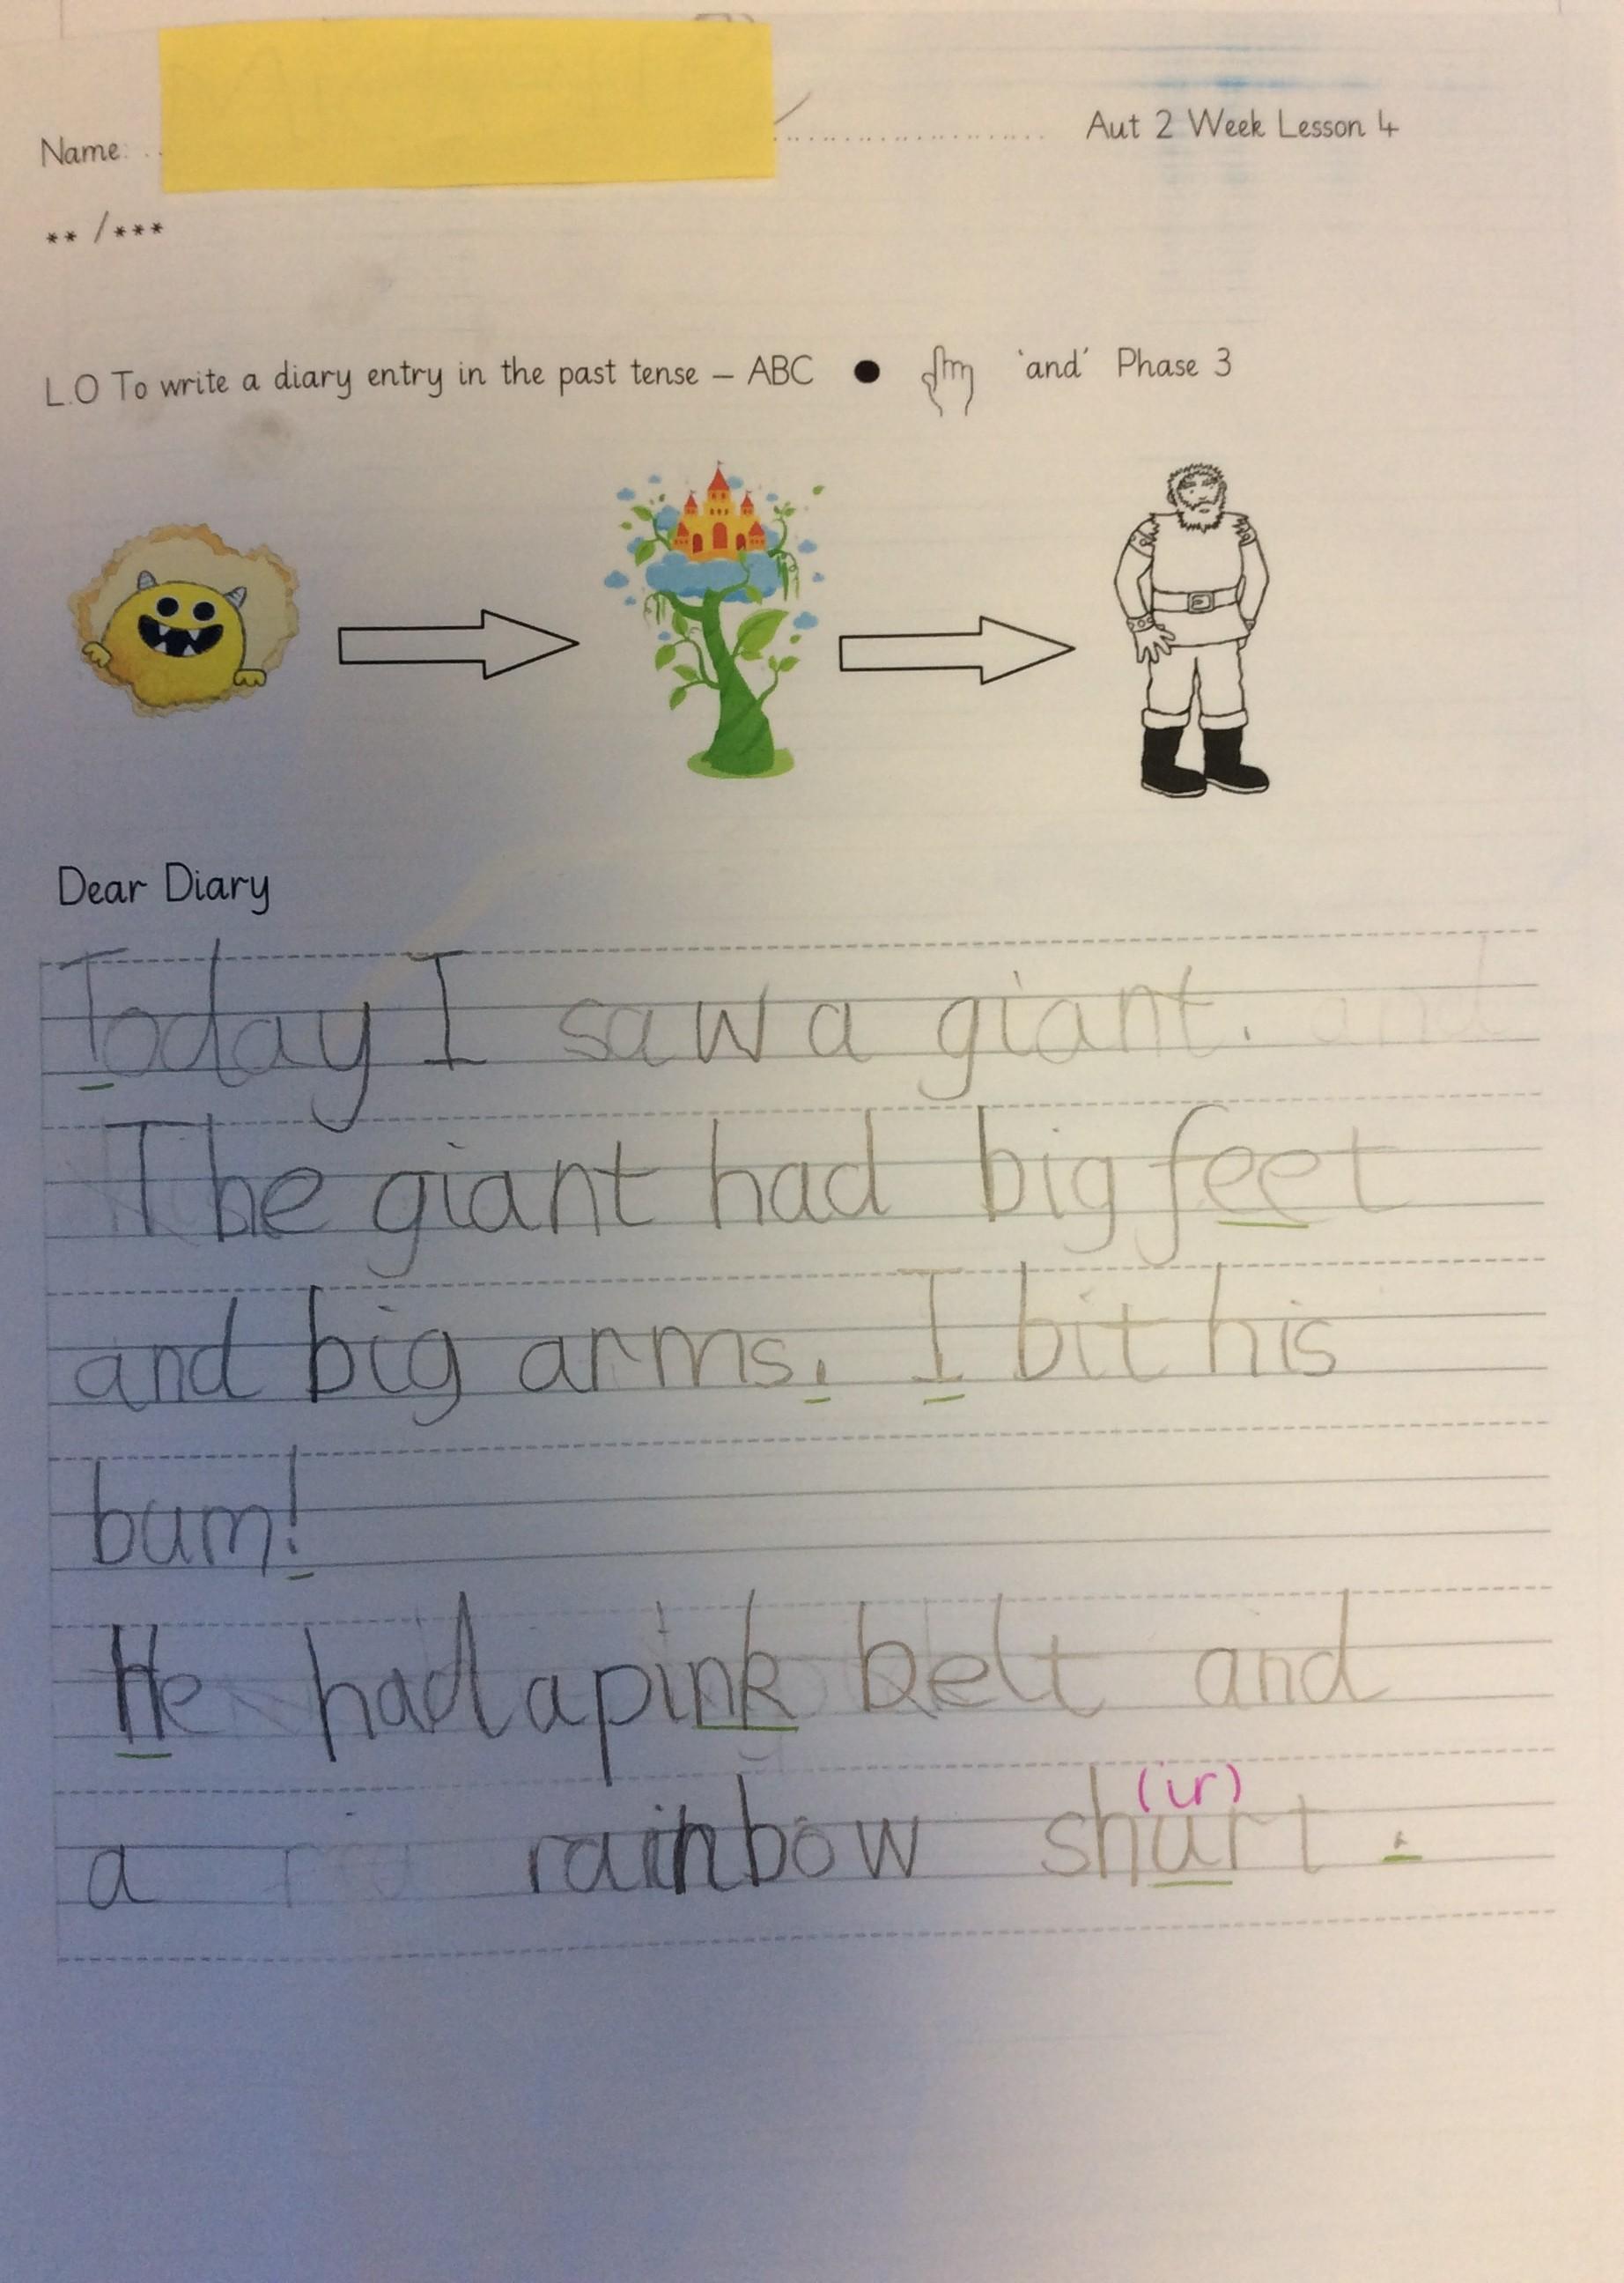 Name: Aut 2 Week Lesson 4
** /***
L.O To write a diary entry in the past tense – ABC ● 'and' Phase 3
Dear Diary
Today I saw a giant. and
The giant had big feet
and big arms. I bit his
bum!
He had a pink belt and
(ir)
a rainbow shurt.